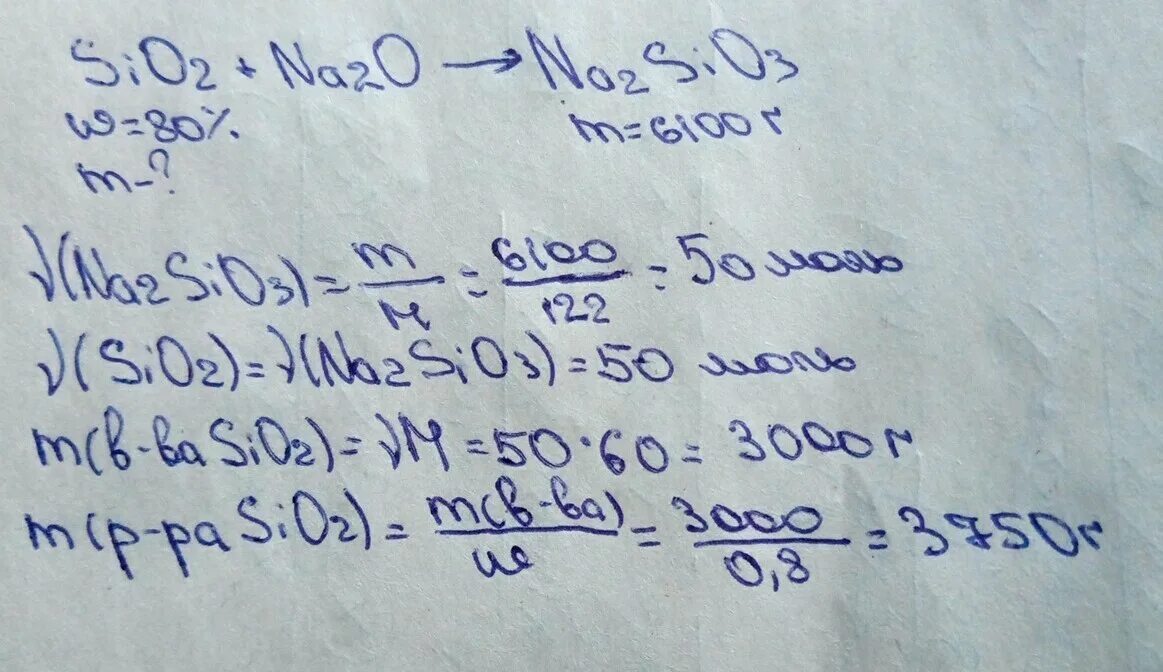 SiO2 + Na2O → Na2SiO3
w=80% m=6100г
m-?
ν(Na2SiO3)= m/M = 6100/122 = 50 моль
ν(SiO2)=ν(Na2SiO3)=50 моль
m(в-ва SiO2)=νM=50·60= 3000г
m(р-ра SiO2)= m(в-ва)/w = 3000/0,8 = 3750г